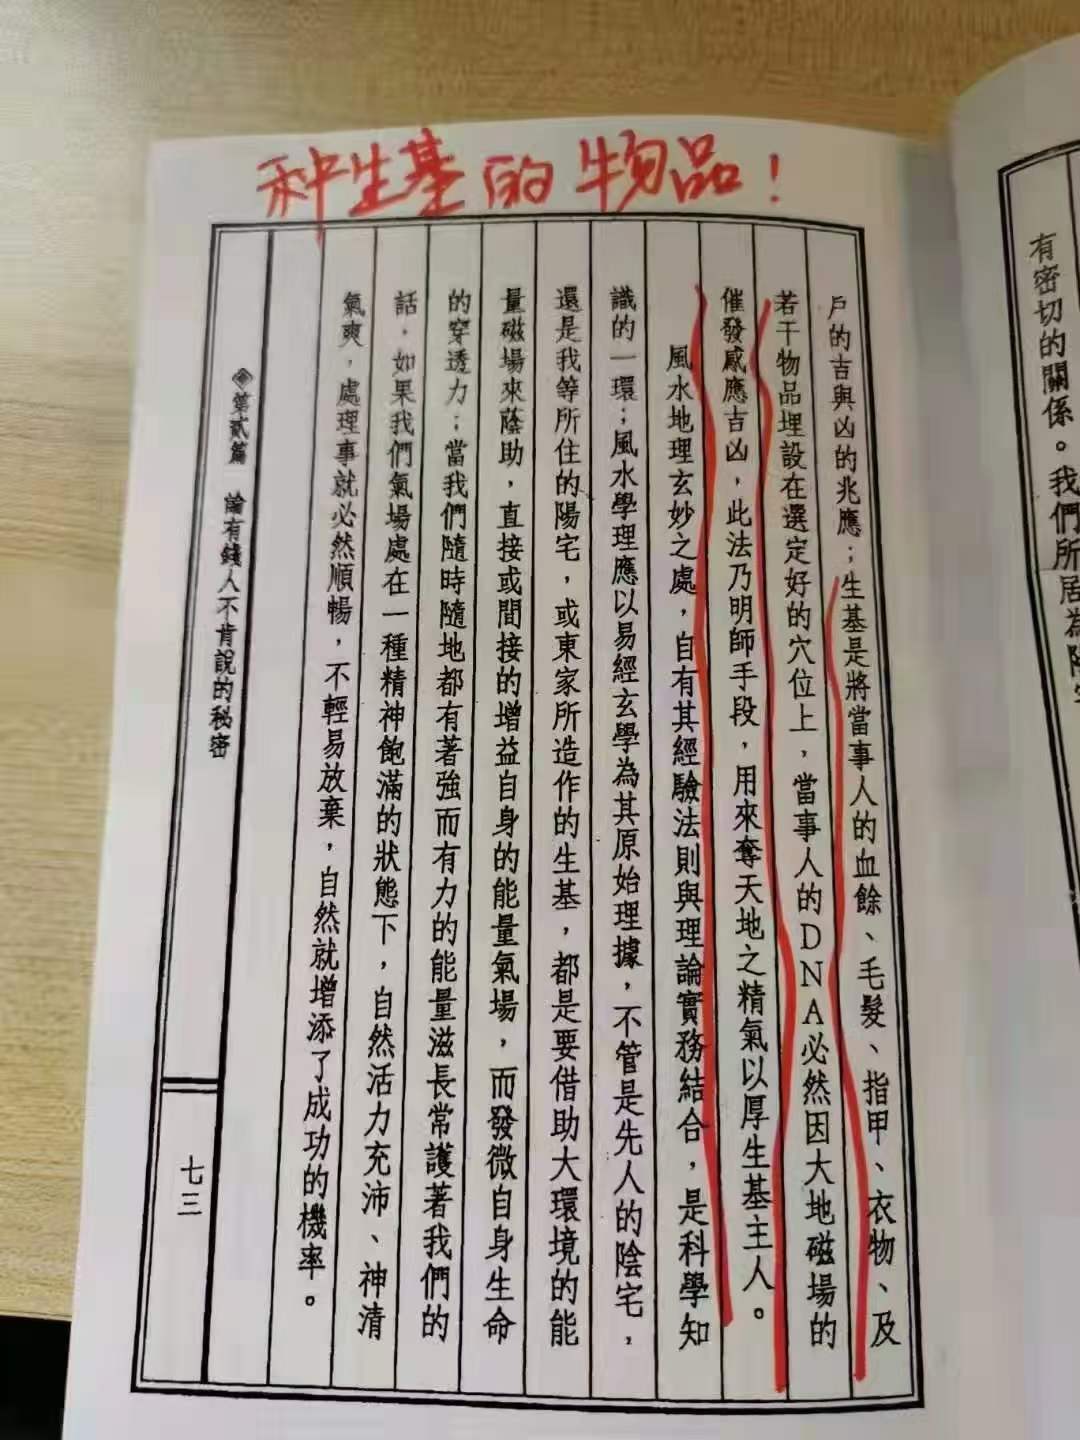 种生基的物品！
戶的吉與凶的兆應；生基是將當事人的血餘、毛髮、指甲、衣物、及
若干物品埋設在選定好的穴位上，當事人的DNA必然因大地磁場的
催發感應吉凶，此法乃明師手段，用來奪天地之精氣以厚生基主人。
風水地理玄妙之處，自有其經驗法則與理論實務結合，是科學知
識的一環；風水學理應以易經玄學為其原始理據，不管是先人的陰宅，
還是我等所住的陽宅，或東家所造作的生基，都是要借助大環境的能
量磁場來蔭助，直接或間接的增益自身的能量氣場，而發微自身生命
的穿透力；當我們隨時隨地都有著強而有力的能量滋長常護著我們的
話，如果我們氣場處在一種精神飽滿的狀態下，自然活力充沛、神清
氣爽，處理事就必然順暢，不輕易放棄，自然就增添了成功的機率。
◈第貳篇 論有錢人不肯說的秘密
七三
有密切的關係。我們所居為陽